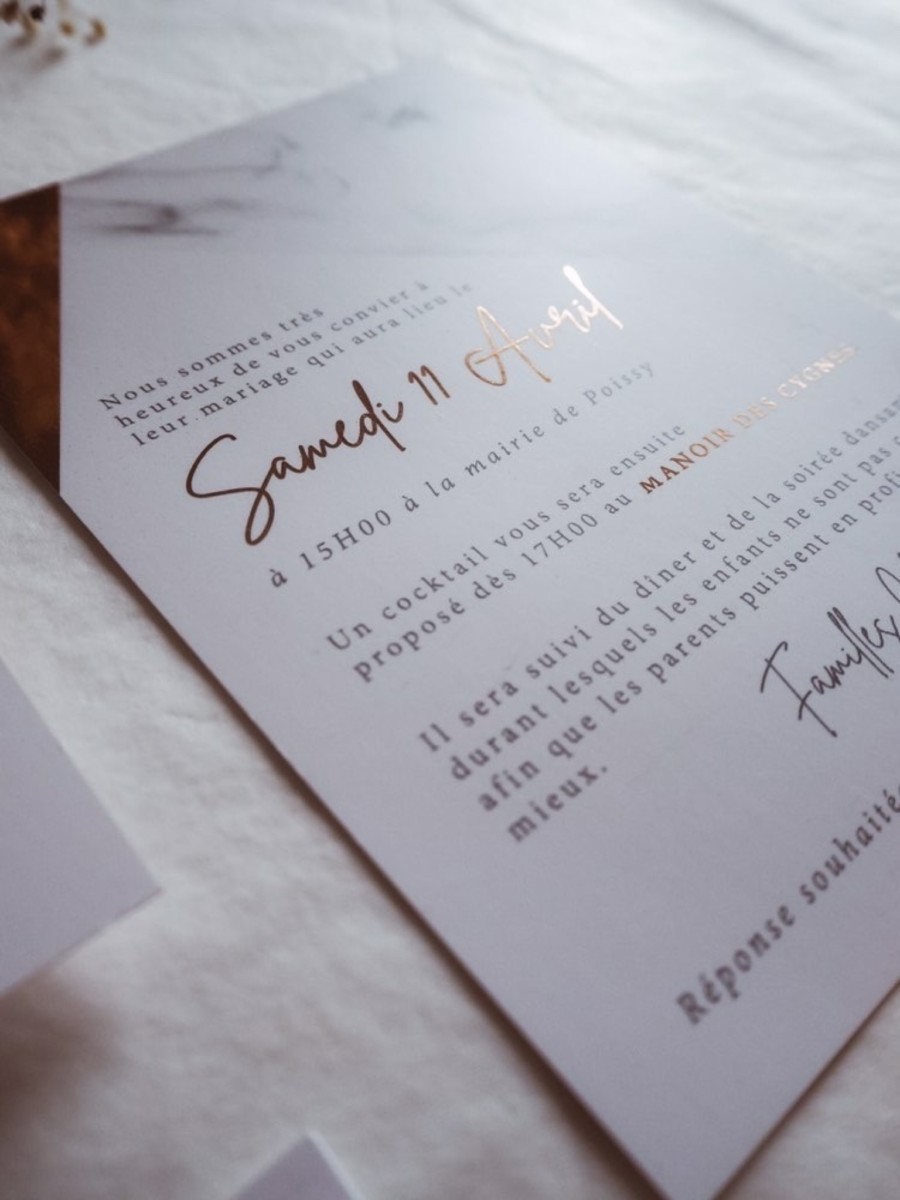 Nous sommes très
heureux de vous convier à
leur mariage qui aura lieu le
Samedi 11 Avril
à 15H00 à la mairie de Poissy
Un cocktail vous sera ensuite
proposé dès 17H00 au MANOIR DES CYGNES
Il sera suivi du dîner et de la soirée
durant lesquels les enfants ne sont pas
afin que les parents puissent en
mieux.
Familles
Réponse souhaitée